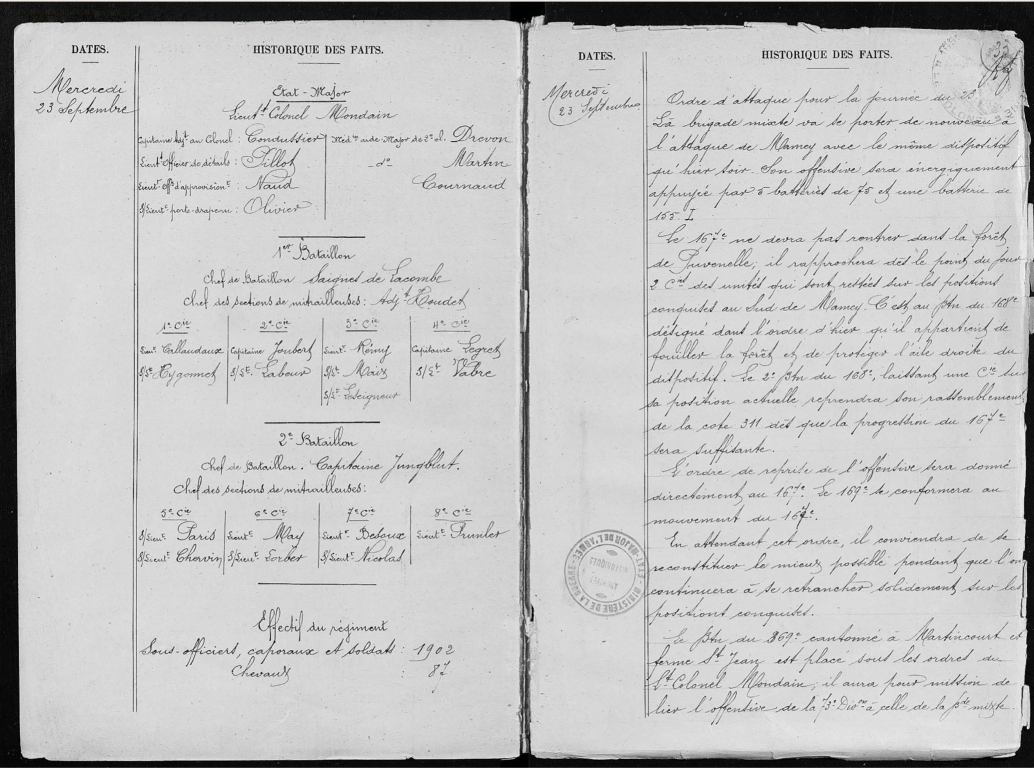 DATES.
HISTORIQUE DES FAITS.
Mercredi
23 Septembre
Etat-Major
Lieut-Colonel Mondain
Capitaine Adjt au Colonel : Condussier
Lieutt Officier de détails : Pillot
Lieutt Offer d'approvisiont : Naud
S/Lieutt porte-drapeau : Olivier
Médin aide Major de 2e cl. Drevon
do Martin
Cournaud
1er Bataillon
Chef de Bataillon Saignes de Lacombe
Chef des sections de mitrailleuses : Adjt Houdet
1e Cie 2e Cie 3e Cie 4e Cie
Lieutt Callaudaux Capitaine Joubert Lieutt Rémy Capitaine Legret
S/Lt Eygonnet S/Lt Labour S/Lt Maix S/Lt Vabre
S/Lt Leseigneur
2e Bataillon
Chef de Bataillon. Capitaine Jungblut.
Chef des sections de mitrailleuses :
5e Cie 6e Cie 7e Cie 8e Cie
S/Lieutt Paris Lieutt May Lieutt Besoux Lieutt Prunier
S/Lieutt Charvin S/Lieutt Lorber S/Lieutt Nicolas
Effectif du régiment
Sous-officiers, caporaux et soldats : 1902
Chevaux : 87
DATES.
HISTORIQUE DES FAITS.
Mercredi
23 Septembre
Ordre d'attaque pour la journée du 23
La brigade mixte va se porter de nouveau à
l'attaque de Mamey avec le même dispositif
qu'hier soir. Son offensive sera énergiquement
appuyée par 5 batteries de 75 et une batterie de
155.
Le 167e ne devra pas rentrer dans la forêt
de Puvenelle ; il rapprochera dès le point du jour
2 Cies des unités qui sont restées sur les positions
conquises au Sud de Mamey. C'est au Btn du 168e
désigné dans l'ordre d'hier qu'il appartient de
fouiller la forêt et de protéger l'aile droite du
dispositif. Le 2e Btn du 168e, laissant une Cie sur
sa position actuelle reprendra son rassemblement
de la cote 311 dès que la progression du 167e
sera suffisante.
L'ordre de reprise de l'offensive sera donné
directement au 167e. Le 169e se conformera au
mouvement du 167e.
En attendant cet ordre, il conviendra de se
reconstituer le mieux possible pendant que l'on
continuera à se retrancher solidement sur les
positions conquises.
Le Btn du 369e cantonné à Martincourt et
ferme St Jean est placé sous les ordres du
Lt Colonel Mondain ; il aura pour mission de
lier l'offensive de la 73e Dion à celle de la Bde mixte.
MINISTÈRE DE LA GUERRE
ETAT-MAJOR DE L'ARMÉE